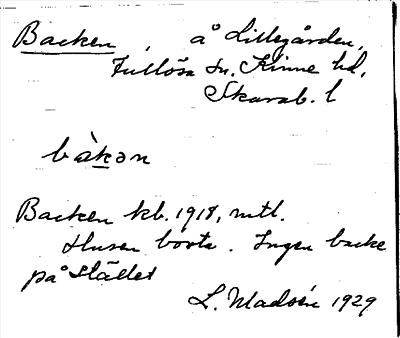 Backen, å Lillegården,
Fullösa sn. Kinne hd.
Skarab. l
bàkən
Backen kb. 1918, mtl.
Husen borta. Ingen backe
på stället
L. Madsén 1929